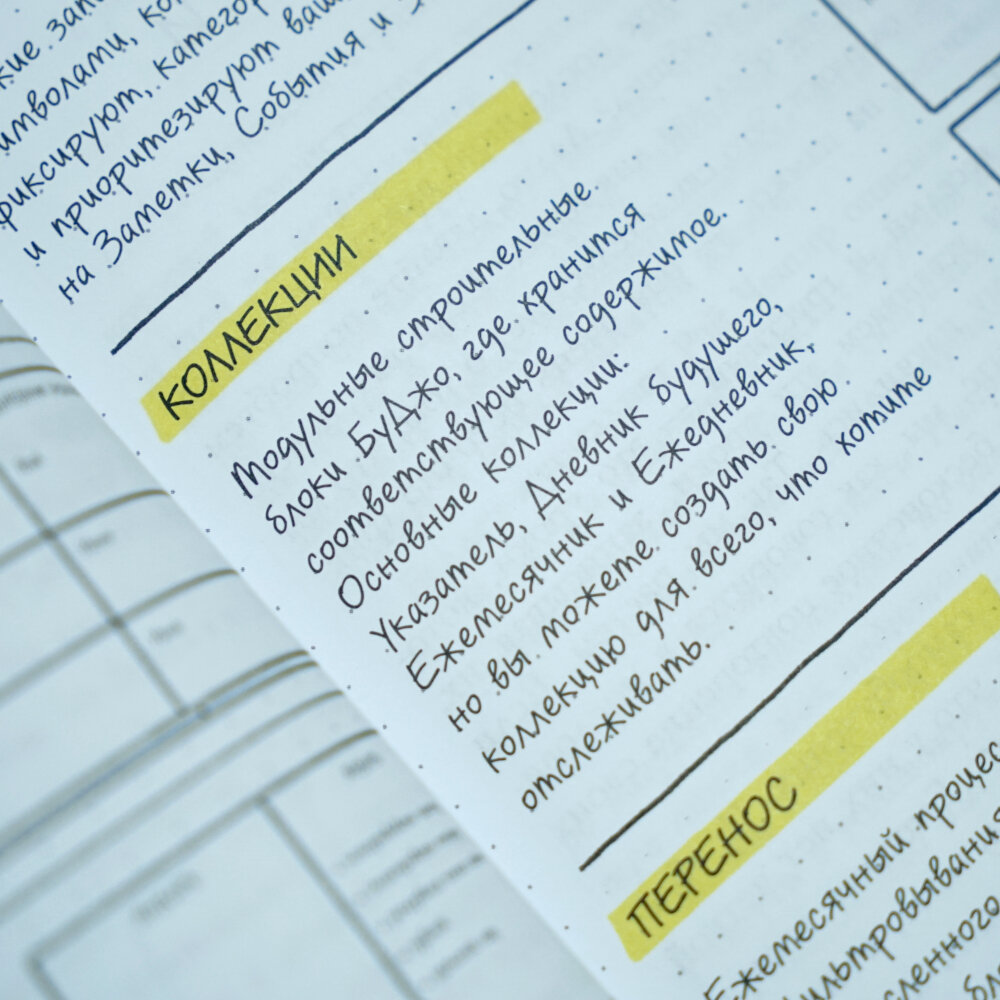 символами, 
фиксируют, 
и приоритезируют
на Заметки, События и
КОЛЛЕКЦИИ
Модульные строительные
блоки БуДжо, где хранится
соответствующее содержимое.
Основные коллекции:
Указатель, Дневник будушего,
Ежемесячник и Ежедневник,
но вы можете создать свою
коллекцию для всего, что хотите
отслеживать.
ПЕРЕНОС
Ежемесячный